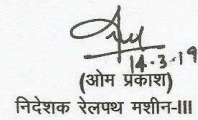 14.3.19
(ओम प्रकाश)
निदेशक रेलपथ मशीन-III